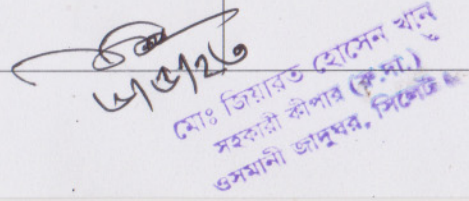 মোঃ জিয়ারত হোসেন খান
সহকারী কীপার (ক.সা.)
ওসমানী জাদুঘর, সিলেট